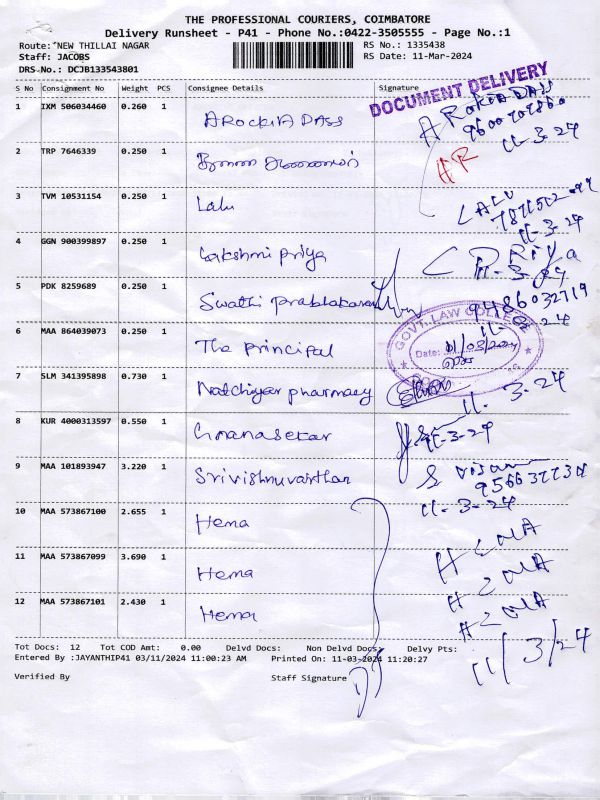 THE PROFESSIONAL COURIERS, COIMBATORE
Delivery Runsheet - P41 - Phone No.:0422-3505555 - Page No.:1
Route: NEW THILLAI NAGAR
RS No.: 1335438
Staff: JACOBS
RS Date: 11-Mar-2024
DRS No.: DCJB133543801
DOCUMENT DELIVERY
S No Consignment No Weight PCS Consignee Details Signature
1 IXM 506034460 0.260 1 AROCKIA DASS AROKIA DASS
11-3-24
2 TRP 7646339 0.250 1
3 TVM 10531154 0.250 1 Lalu LALU
11-3-24
4 GGN 900399897 0.250 1 Lakshmi Priya PRIya
5 PDK 8259689 0.250 1 Swathi Prabhakaran
9486032719
GOVT. LAW COLLEGE
Date: 11/03/2024
6 MAA 864039073 0.250 1 The Principal
7 SLM 341395898 0.730 1 Natchiyar pharmacy 11-3-24
8 KUR 4000313597 0.550 1 Gnanasekar 11-3-24
9 MAA 101893947 3.220 1 Srivishnuvarthan
11-3-24
10 MAA 573867100 2.655 1 Hema HEMA
11 MAA 573867099 3.690 1 Hema HEMA
12 MAA 573867101 2.430 1 Hema HEMA
11/3/24
Tot Docs: 12 Tot COD Amt: 0.00 Delvd Docs: Non Delvd Docs: Delvy Pts:
Entered By :JAYANTHIP41 03/11/2024 11:00:23 AM Printed On: 11-03-2024 11:20:27
Verified By Staff Signature